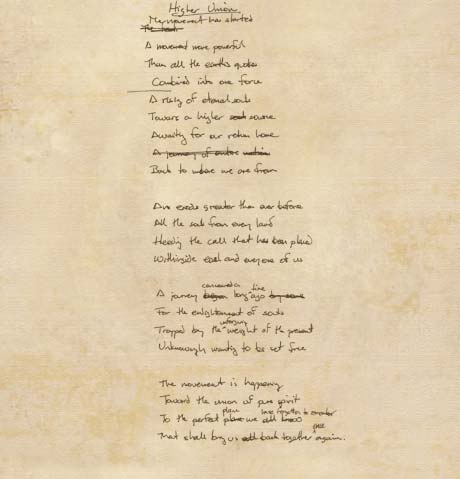 Higher Union
The movement has started
A movement more powerful
Than all the earths quakes
Combined into one force
A rising of eternal souls
Towars a higher source
Awaitig for our return home
A journey of
Back to where we are from
An exodus greater than ever before
All the souls from every land
Heedig the call that has been placed
Withinside each and everyone of us
A journey long ago time
For the enlightenment of souls
Trapped by the weight of the present
Unknowingly wantig to be set free
The movement is happenig
Toward the union of pure spirit
To the perfect place we
That shall brig us back together again.